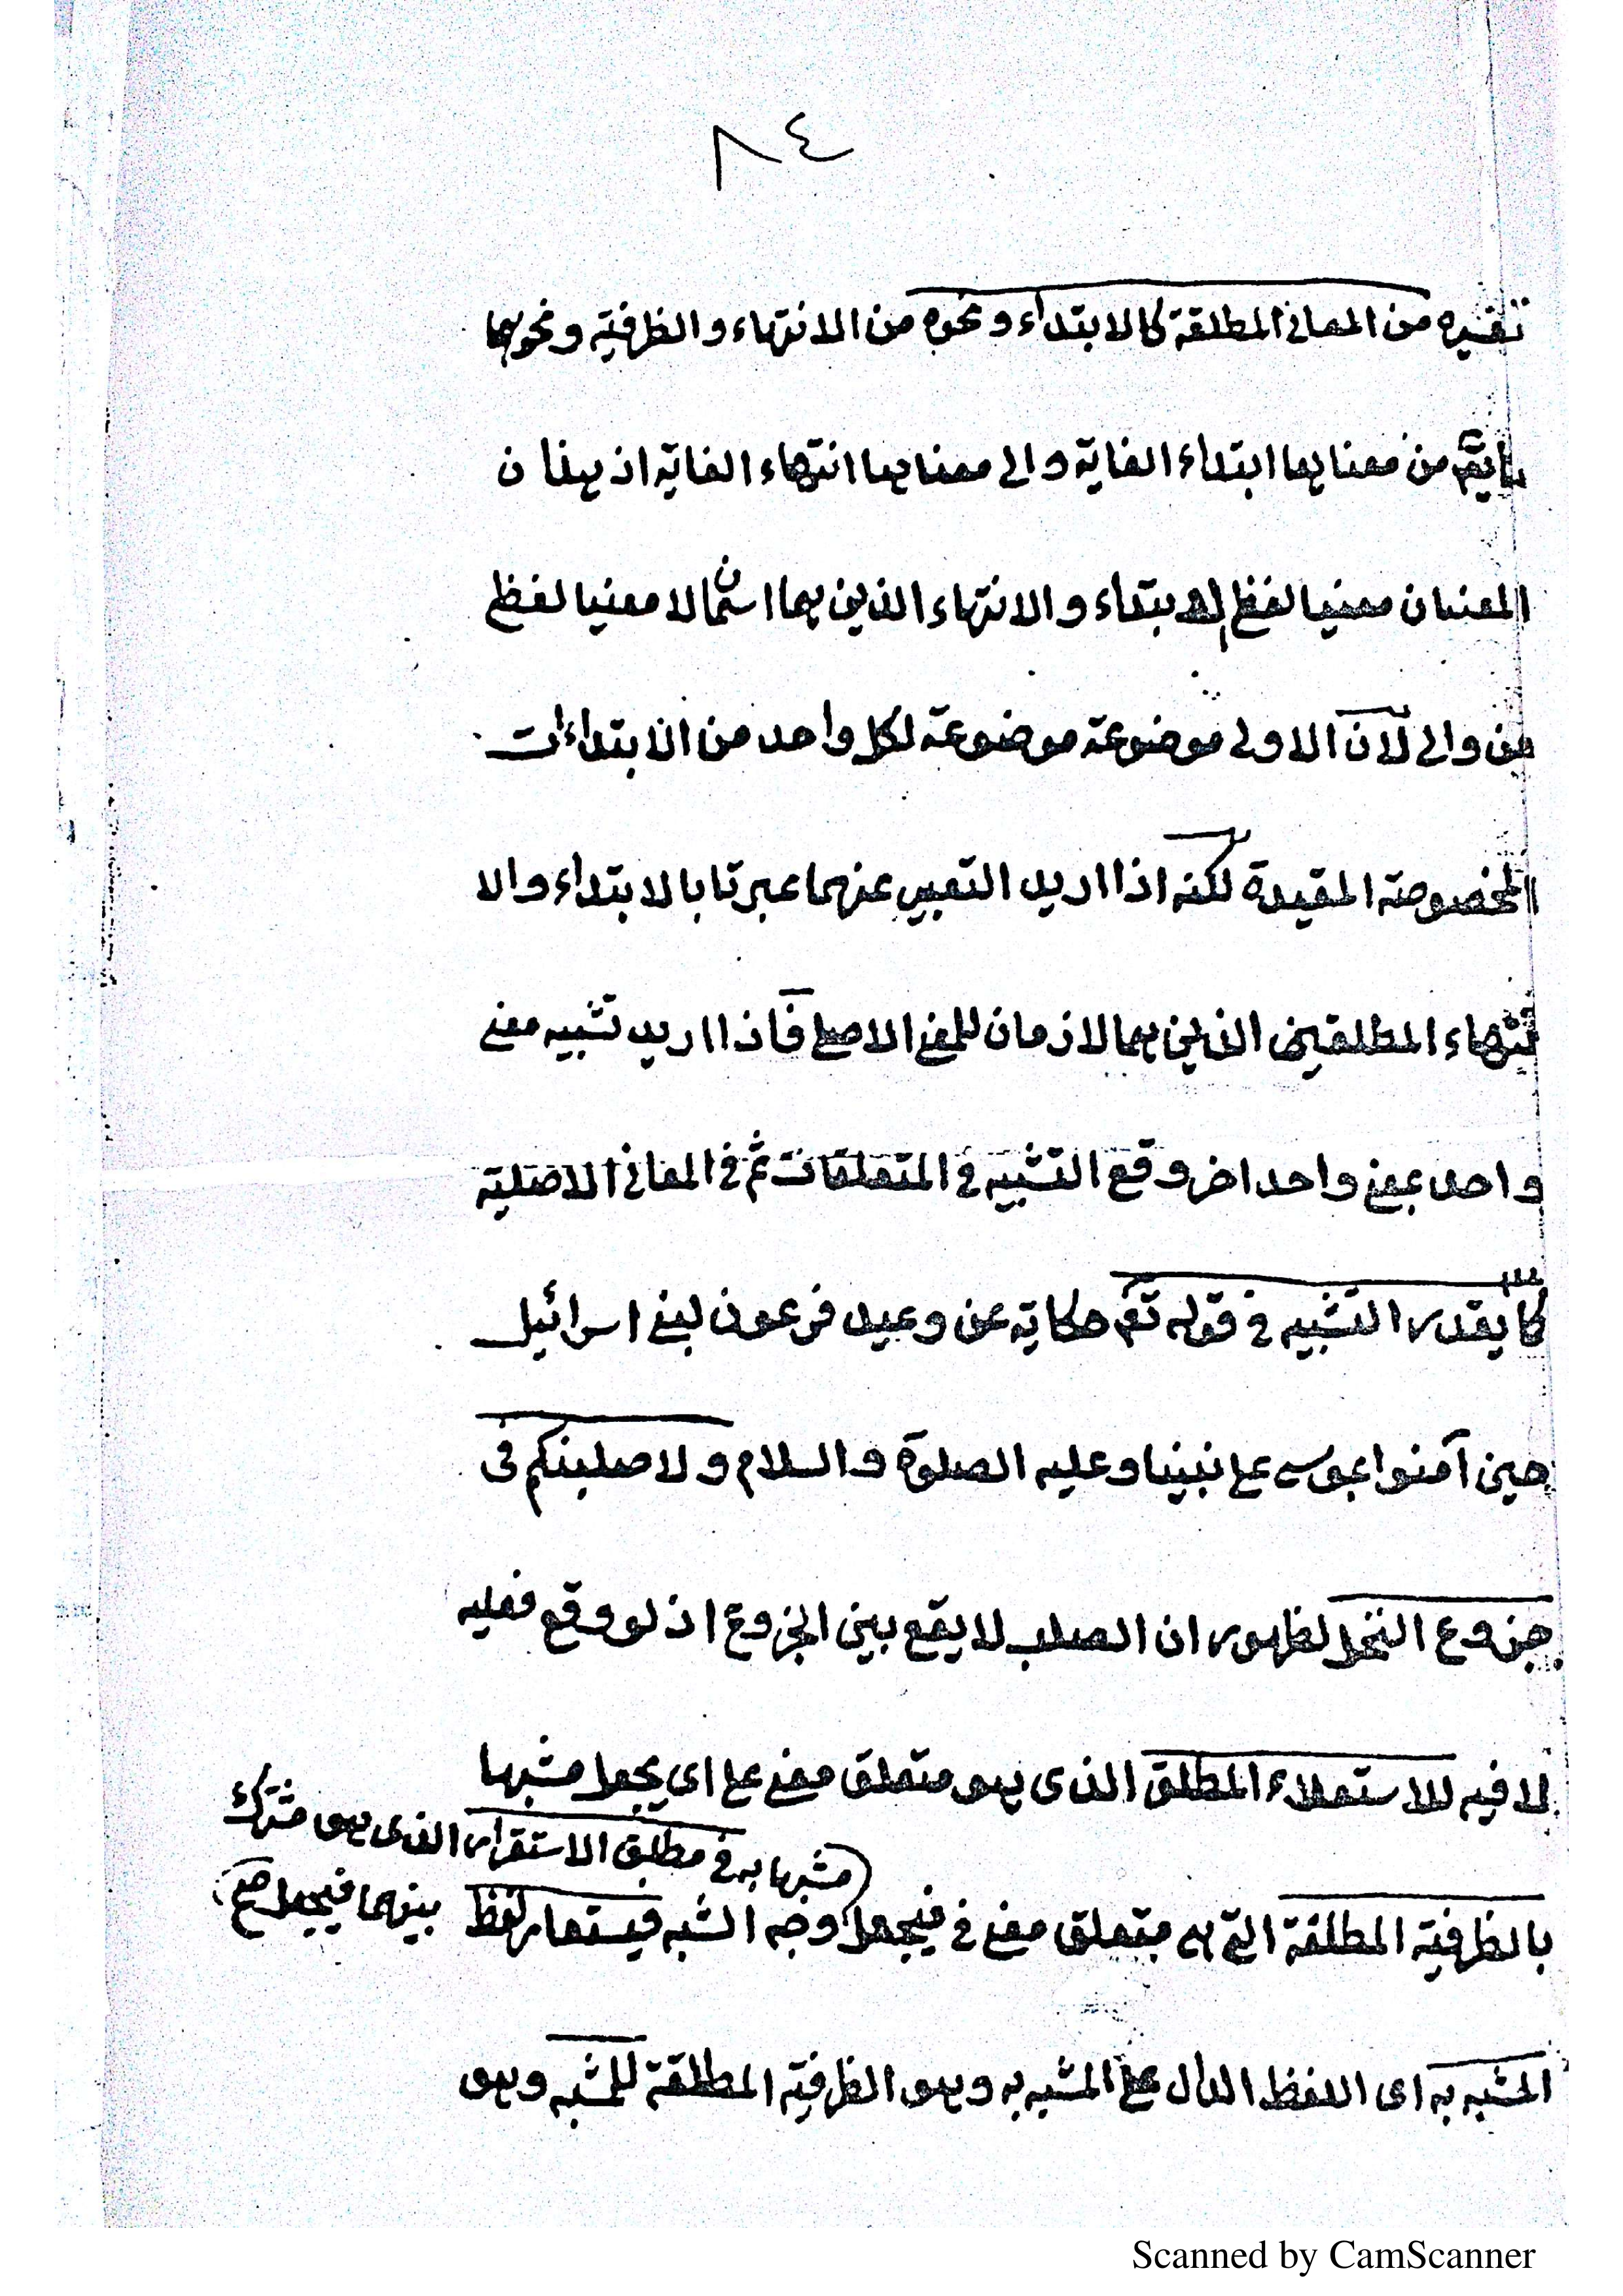 ٨٤
تفسيره من المعانى المطلقة كالابتداء ونحوه من الانتهاء والظرفية ونحوهما
يقم من معناها ابتداء الغاية والى معناها انتهاء الغاية اذ هذا ن
المعنيان معنيا لفظ الابتداء والانتهاء الذين هما اسمان لا معنيا لفظ
من والى لان الاولى موضوعة موضوعة لكل واحد من الابتداءات
المخصوصة المقيدة لكنه اذا اريد التعبير عنهما عبرتا بالابتداء والا
نتهاء المطلقين الذين هما لازمان للمعنى الاصلى فاذا اريد تشبيه معنى
واحد بمعنى واحد اخر وقع التشبيه فى المتعلقات ثم فى المعانى الاصلية
كما يقدر التشبيه فى قوله تع حكاية عن وعيد فرعون لبنى اسرائيل
حين آمنوا بموسى على نبينا وعليه الصلوة والسلام ولاصلبنكم فى
جزوع النخل لظهور ان الصلب لا يقع بين الجزوع اذ لو وقع فعليه
لا فيه للاستعلاء المطلق الذى هو متعلق معنى على اى يجعل مشبها
مشبها به فى مطلق الاستقرار الذى هو مشترك
بينهما فيجعل صح
بالظرفية المطلقة التى هى متعلق معنى فى فيجعل وجه الشبه فيستعار لفظ
المشبه به اى اللفظ الدال على المشبه به وهو الظرفية المطلقة للمشبه وهو
Scanned by CamScanner